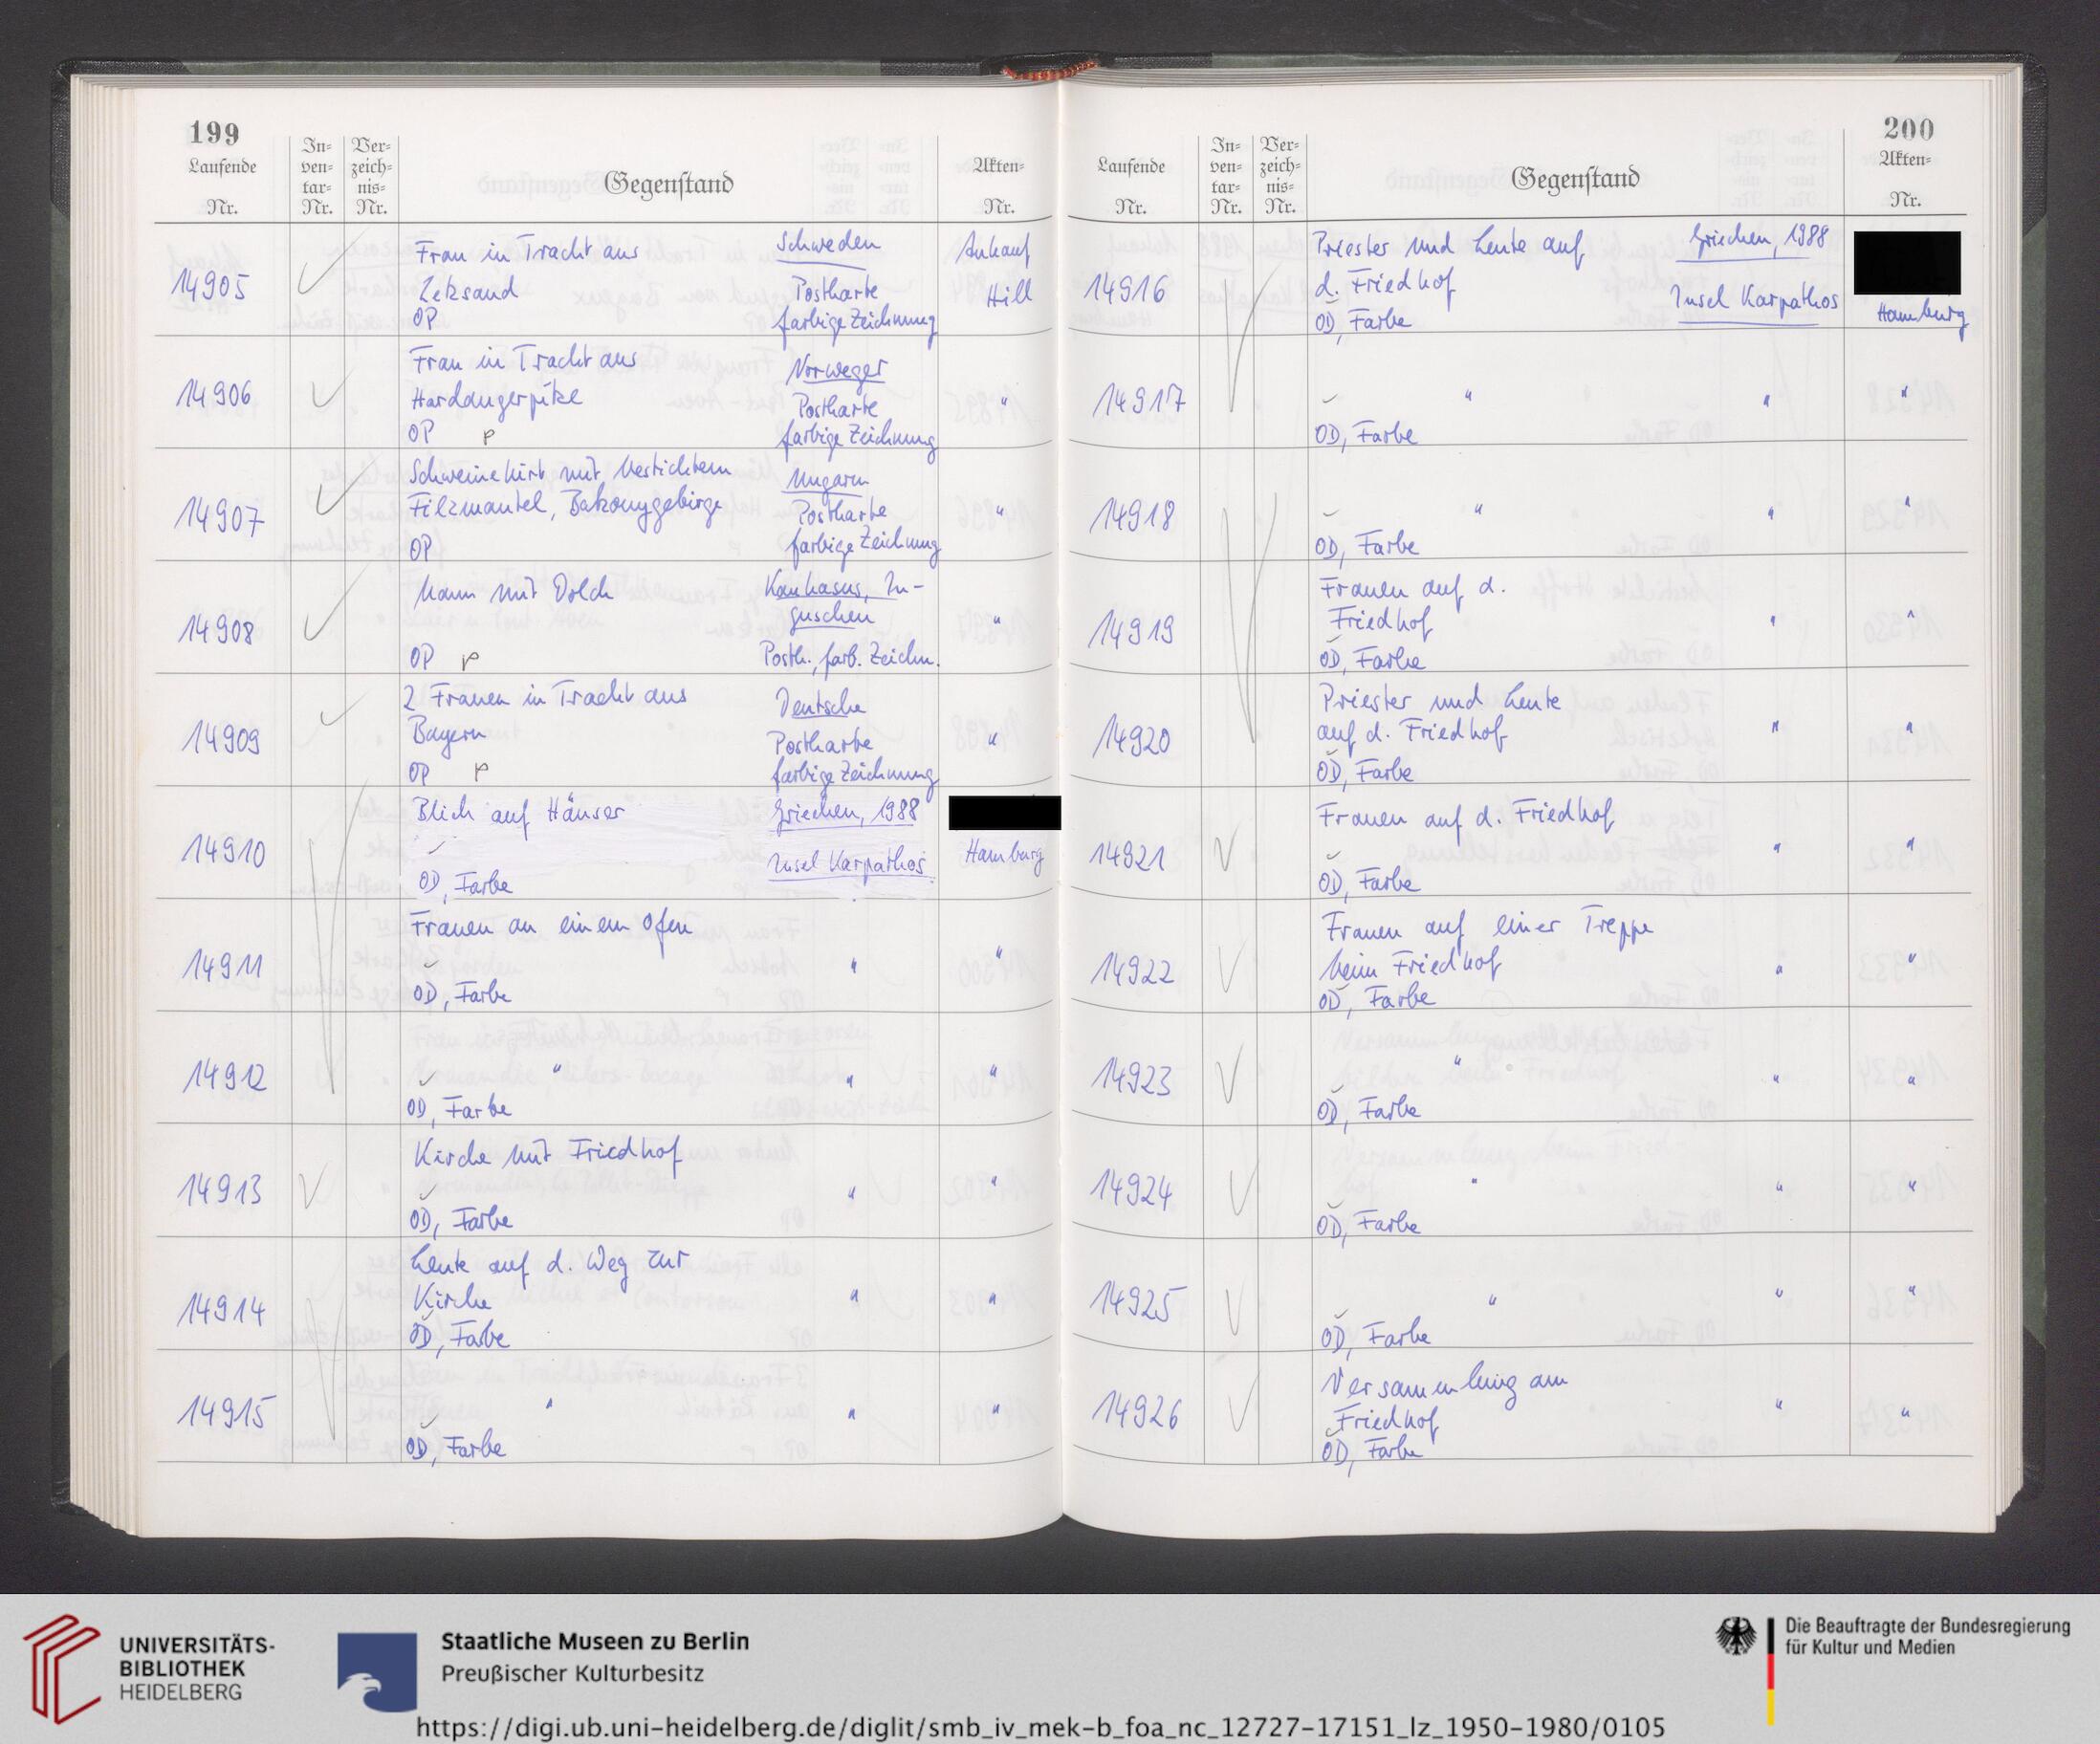 199
Laufende Nr.
In-ven-tar-Nr.
Ver-zeich-nis-Nr.
Gegenstand
Akten-Nr.
14905 Frau in Tracht aus Schweden Ankauf
Leksand Postkarte Hill
OP farbige Zeichnung
14906 Frau in Tracht aus Norweger
Hardangerpike Postkarte "
OP P farbige Zeichnung
14907 Schweinehirt mit besticktem Ungarn
Filzmantel, Bakonygebirge Postkarte "
OP farbige Zeichnung
14908 Mann mit Dolch Kaukasus, In-
guschen "
OP P Postk., farb. Zeichn.
14909 2 Frauen in Tracht aus Deutsche
Bayern Postkarte "
OP P farbige Zeichnung
14910 Blick auf Häuser Griechen, 1988
Insel Karpathos Hamburg
OD, Farbe
14911 Frauen an einem Ofen
" "
OD, Farbe
14912 " " "
OD, Farbe
14913 Kirche mit Friedhof
" "
OD, Farbe
14914 Leute auf d. Weg zur
Kirche " "
OD, Farbe
14915 " " "
OD, Farbe
200
Laufende Nr.
In-ven-tar-Nr.
Ver-zeich-nis-Nr.
Gegenstand
Akten-Nr.
14916 Priester und Leute auf Griechen, 1988
d. Friedhof Insel Karpathos Hamburg
OD, Farbe
14917 " " "
OD, Farbe
14918 " " "
OD, Farbe
14919 Frauen auf d.
Friedhof " "
OD, Farbe
14920 Priester und Leute
auf d. Friedhof " "
OD, Farbe
14921 Frauen auf d. Friedhof
" "
OD, Farbe
14922 Frauen auf einer Treppe
beim Friedhof " "
OD, Farbe
14923 " " "
OD, Farbe
14924 " " "
OD, Farbe
14925 " " "
OD, Farbe
14926 Versammlung am
Friedhof " "
OD, Farbe
UNIVERSITÄTS-
BIBLIOTHEK
HEIDELBERG
Staatliche Museen zu Berlin
Preußischer Kulturbesitz
Die Beauftragte der Bundesregierung
für Kultur und Medien
https://digi.ub.uni-heidelberg.de/diglit/smb_iv_mek-b_foa_nc_12727-17151_lz_1950-1980/0105